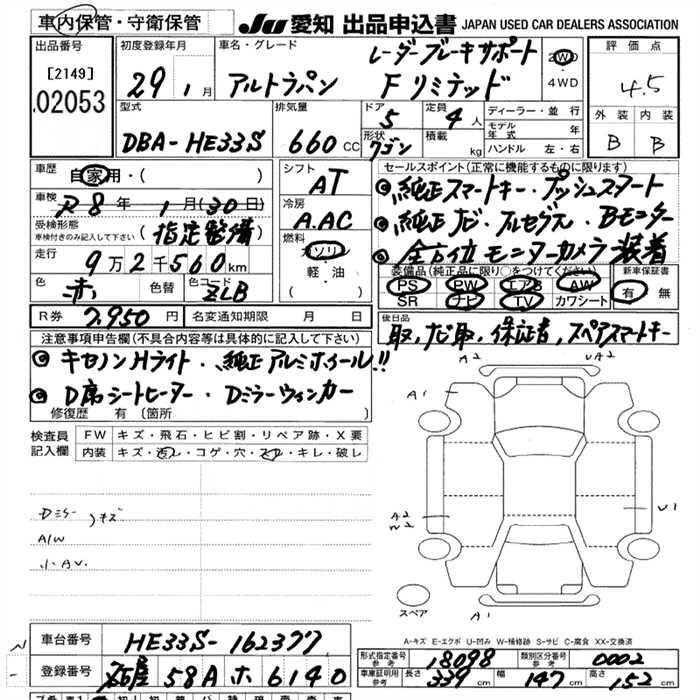 車内保管・守衛保管
JU 愛知 出品申込書 JAPAN USED CAR DEALERS ASSOCIATION
出品番号
[2149]
02053
初度登録年月
29 1月
車名・グレード
レーダーブレーキサポート
アルトラパン Fリミテッド
2WD
・
4WD
評価点
4.5
外装 内装
B B
型式
DBA-HE33S
排気量
660 CC
ドア
5
形状
ワゴン
定員
4人
積載
kg
ディーラー・並行
モデル年式 年
ハンドル 左・右
車歴
自家用・( )
車検
R8年 1月(30日)
受検形態
車検付きのみ記入して下さい
(指定整備)
走行
9万2千560km
色
赤
色替
カラーNo.
ZLB
R券
7,950円
名変通知期限 月 日
シフト
AT
冷房
A.AC
燃料
ガソリン
・
軽・油
( )
セールスポイント(正常に機能するものに限ります)
◎純正スマートキー・プッシュスタート
◎純正ナビ・フルセグTV・Bモニター
◎全方位モニターカメラ装着
装備品(純正品に限り○をつけてください)
PS PW エアB AW
SR ナビ TV カワシート
新車保証書
有 無
後日品
取, ナビ取, 保証書, スペアスマートキー
注意事項申告欄(不具合内容等は具体的に記入して下さい)
◎キセノンHライト・純正アルミホイール!!
◎D席シートヒーター・Dミラーウィンカー
修復歴 有 〔箇所 〕
検査員
記入欄
FW キズ・飛石・ヒビ割・リペア跡・X要
内装 キズ・汚レ・コゲ・穴・スレ・キレ・破レ
Dミラー キズ
A/W
小AU.
A2 UA2
A1
A2
W2
U1
A1
スペア
A-キズ E-エクボ U-凹み W-補修跡 S-サビ C-腐食 XX-交換済
車台番号
HE33S-162377
登録番号
名古屋 58A ホ 6140
形式指定番号
参考
18098
類別区分番号
参考
0002
車庫証明用
参考
長さ 339 cm 幅 147 cm 高さ 152 cm